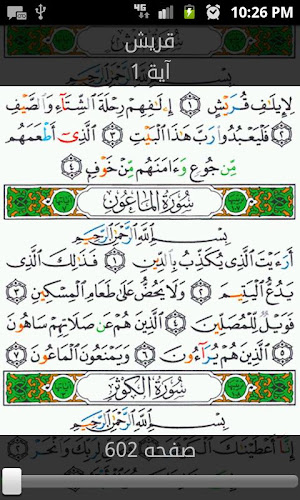 4G 10:26 PM
قريش
آية 1
بِسْمِ اللَّهِ الرَّحْمَٰنِ الرَّحِيمِ
لِإِيلَٰفِ قُرَيْشٍ ١ إِۦلَٰفِهِمْ رِحْلَةَ ٱلشِّتَآءِ وَٱلصَّيْفِ
٢ فَلْيَعْبُدُوا۟ رَبَّ هَٰذَا ٱلْبَيْتِ ٣ ٱلَّذِىٓ أَطْعَمَهُم
مِّن جُوعٍ وَءَامَنَهُم مِّنْ خَوْفٍۭ ٤
سُورَةُ المَاعُون
بِسْمِ اللَّهِ الرَّحْمَٰنِ الرَّحِيمِ
أَرَءَيْتَ ٱلَّذِى يُكَذِّبُ بِٱلدِّينِ ١ فَذَٰلِكَ ٱلَّذِى
يَدُعُّ ٱلْيَتِيمَ ٢ وَلَا يَحُضُّ عَلَىٰ طَعَامِ ٱلْمِسْكِينِ ٣
فَوَيْلٌ لِّلْمُصَلِّينَ ٤ ٱلَّذِينَ هُمْ عَن صَلَاتِهِمْ سَاهُونَ
٥ ٱلَّذِينَ هُمْ يُرَآءُونَ ٦ وَيَمْنَعُونَ ٱلْمَاعُونَ ٧
سُورَةُ الكَوْثَر
بِسْمِ اللَّهِ الرَّحْمَٰنِ الرَّحِيمِ
إِنَّآ أَعْطَيْنَٰكَ
صفحه 602